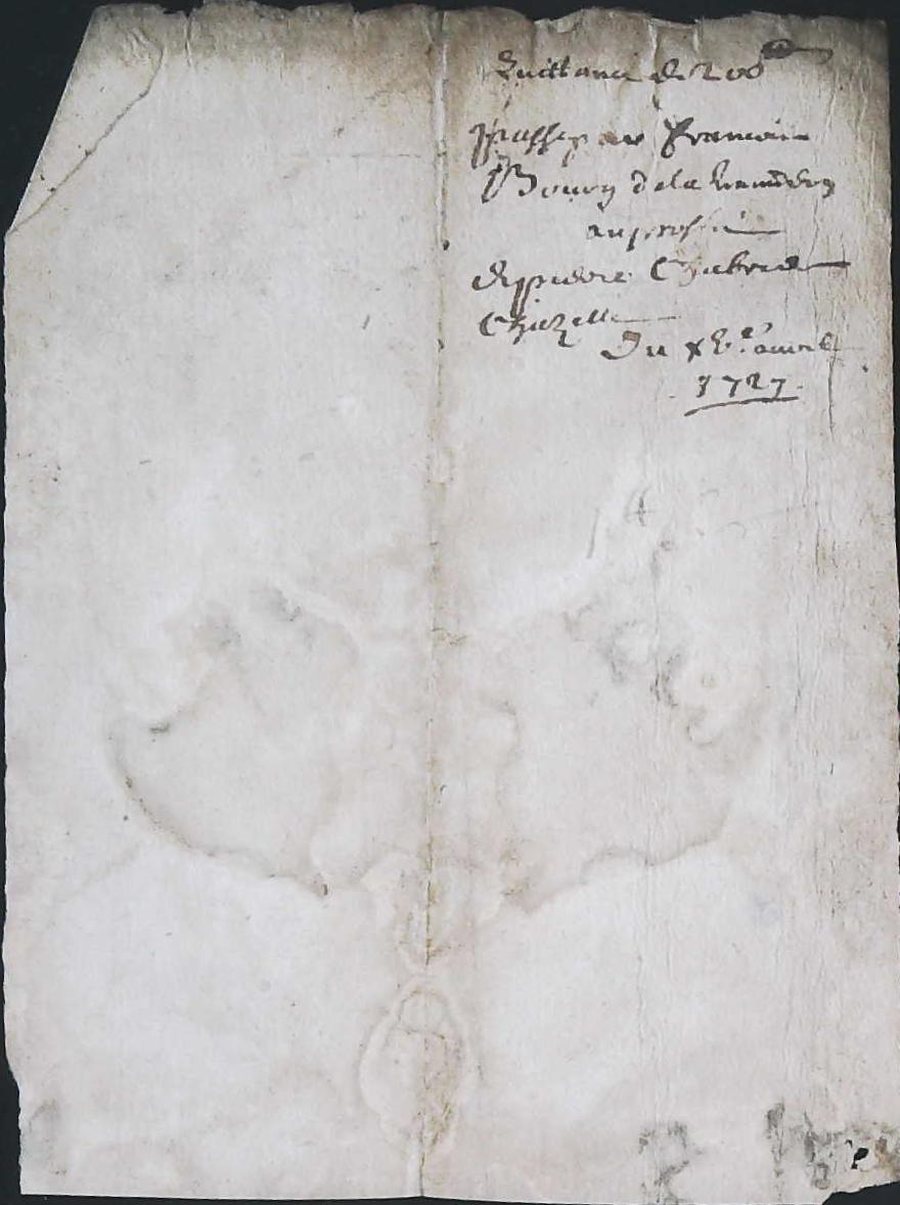 Quittance de 200
passe par Francois
Boury de la
au proffit
de pierre Chabrie
Chazelle
Du xv.e avril
1727